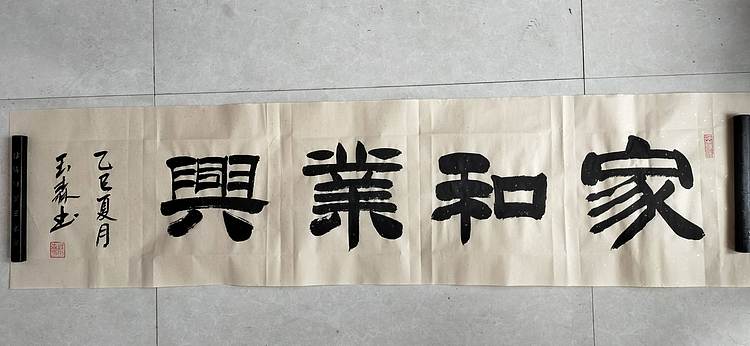 家和業興
乙巳夏月
玉森书